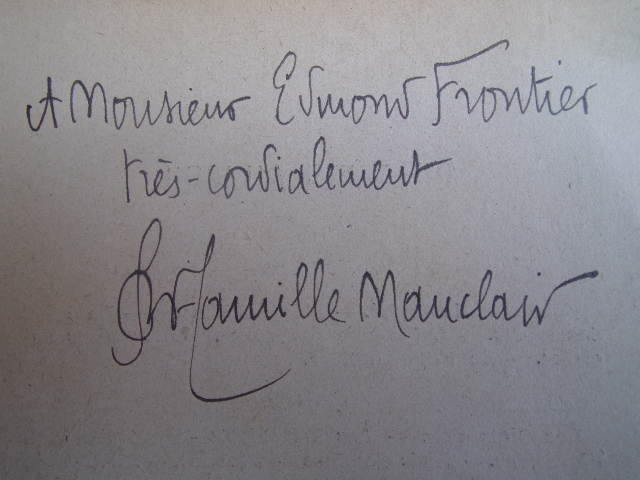 A Monsieur Edmond Frontier
très-cordialement
Camille Mauclair